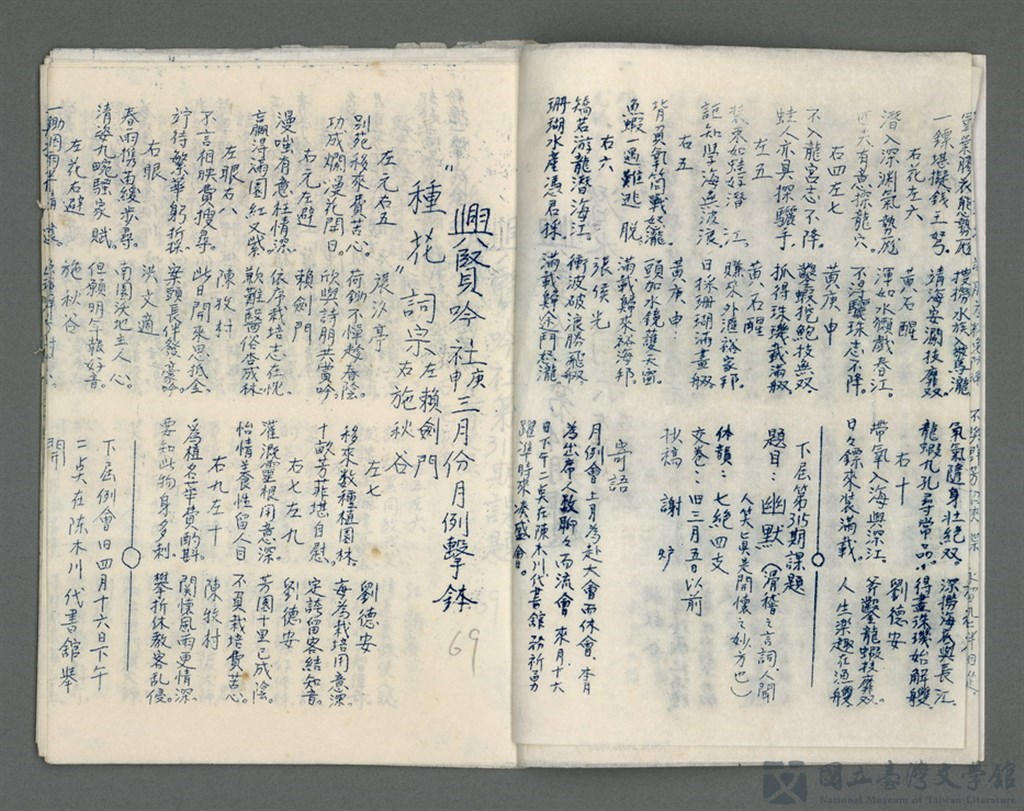 右花左六
潛入深淵氣勢尨
右四左七
不入龍宮志不降
蛙人亦具探驪手
左五
詎知學海無波浪
右五
背負氧筒戰怒瀧
魚蝦一遇難逃脫
右六
矯若游龍潛海江
珊瑚水產憑君採
清海安瀾技靡双
黃石醒
渾如水獺戲春江
不得驪珠志不降
黃庚申
鑿蝦挖鮑技無双
抓得珠璣載滿艭
黃石醒
賺來外滙裕家邦
日採珊瑚滿畫艭
黃庚申
頭加水鏡護天窗
滿載歸來裕海邦
張侯光
衝波破浪勝飛艭
滿載歸途鬥怒瀧
氧氣隨身壯絕双
龍蝦九孔尋常品
右十
帶氧入海與深江
日々鏢來裝滿載
深撈海與長江
得盡珠璣始解艭
劉德安
斧鑿龍蝦技靡双
人生樂趣在漁艭
下屆第315期課題
題目：幽默（滑稽之言詞、人聞
人笑、真是開懷之妙方也）
体韻：七絕四支
交卷：旧三月五日以前
抄稿　謝　炉
寄語
月例會上月為赴大會而休會、本月
為出席人數聊々而流會　來月十六
日下午二点在陳木川代書館　務祈勇
躍準時來湊盛會。
興賢吟社庚申三月份月例擊鉢
“種花”詞宗左賴劍門右施秋谷
69
左元右五
別苑移來費苦心
功成爛漫花開日
右元左避
漫嗤有意枉情深
贏得滿園紅又紫
左眼右八
不言相映費搜尋
竚待繁華躬折採
右眼
春雨携苗緩步尋
清癸九畹騷家賦
左花右避
張汐亭
荷鋤不憚趁春陰
欣與詩朋共賞吟
賴劍門
依序栽培志在忱
歎難醫俗杏成林
陳牧村
此日開來思抵金
案頭長伴發豪吟
洪文適
南園沃地主人心
但願明年報好音
施秋谷
左七
移來数種植園林
十畝芳菲堪自慰
右七左九
灌溉靈根用意深
怡情養性留人目
右九左十
為植名華費酌斟
要知此物身多刺
劉德安
每為栽培用意深
定誇留客結知音
劉德安
芳園十里已成陰
不負栽培費苦心
陳牧村
關懷風雨更情深
攀折休教客亂侵
下屆例會旧四月十六日下午
二点在陳木川代書館舉
開
國立臺灣文學館
National Museum of Taiwan Literature